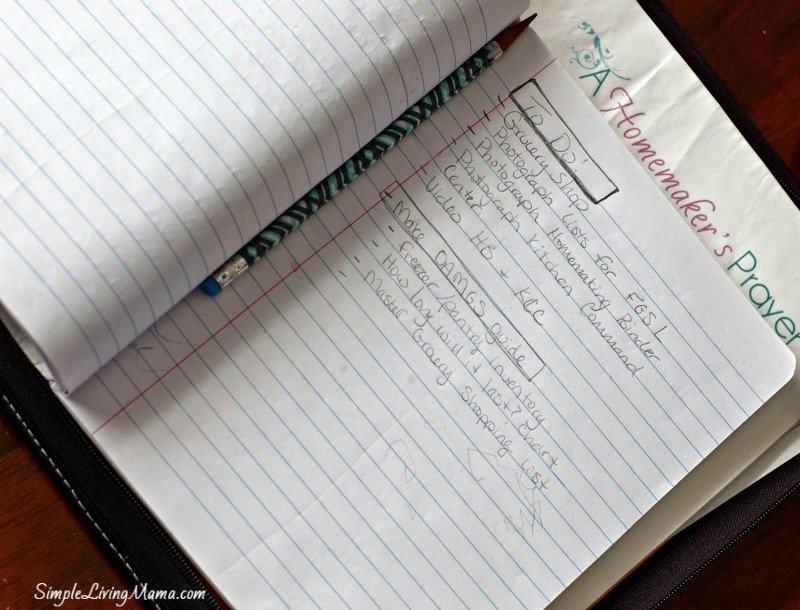 To Do:
- Grocery Shop
- Photograph Lists for FGSL
- Photograph Homemaking Binder
- Photograph Kitchen Command
Center
- Video HB + KCC
- Make OAMGS guide
- Freezer/pantry inventory
- How long will it last? Chart
- Master Grocery Shopping List
A Homemaker's Prayer
SimpleLivingMama.com